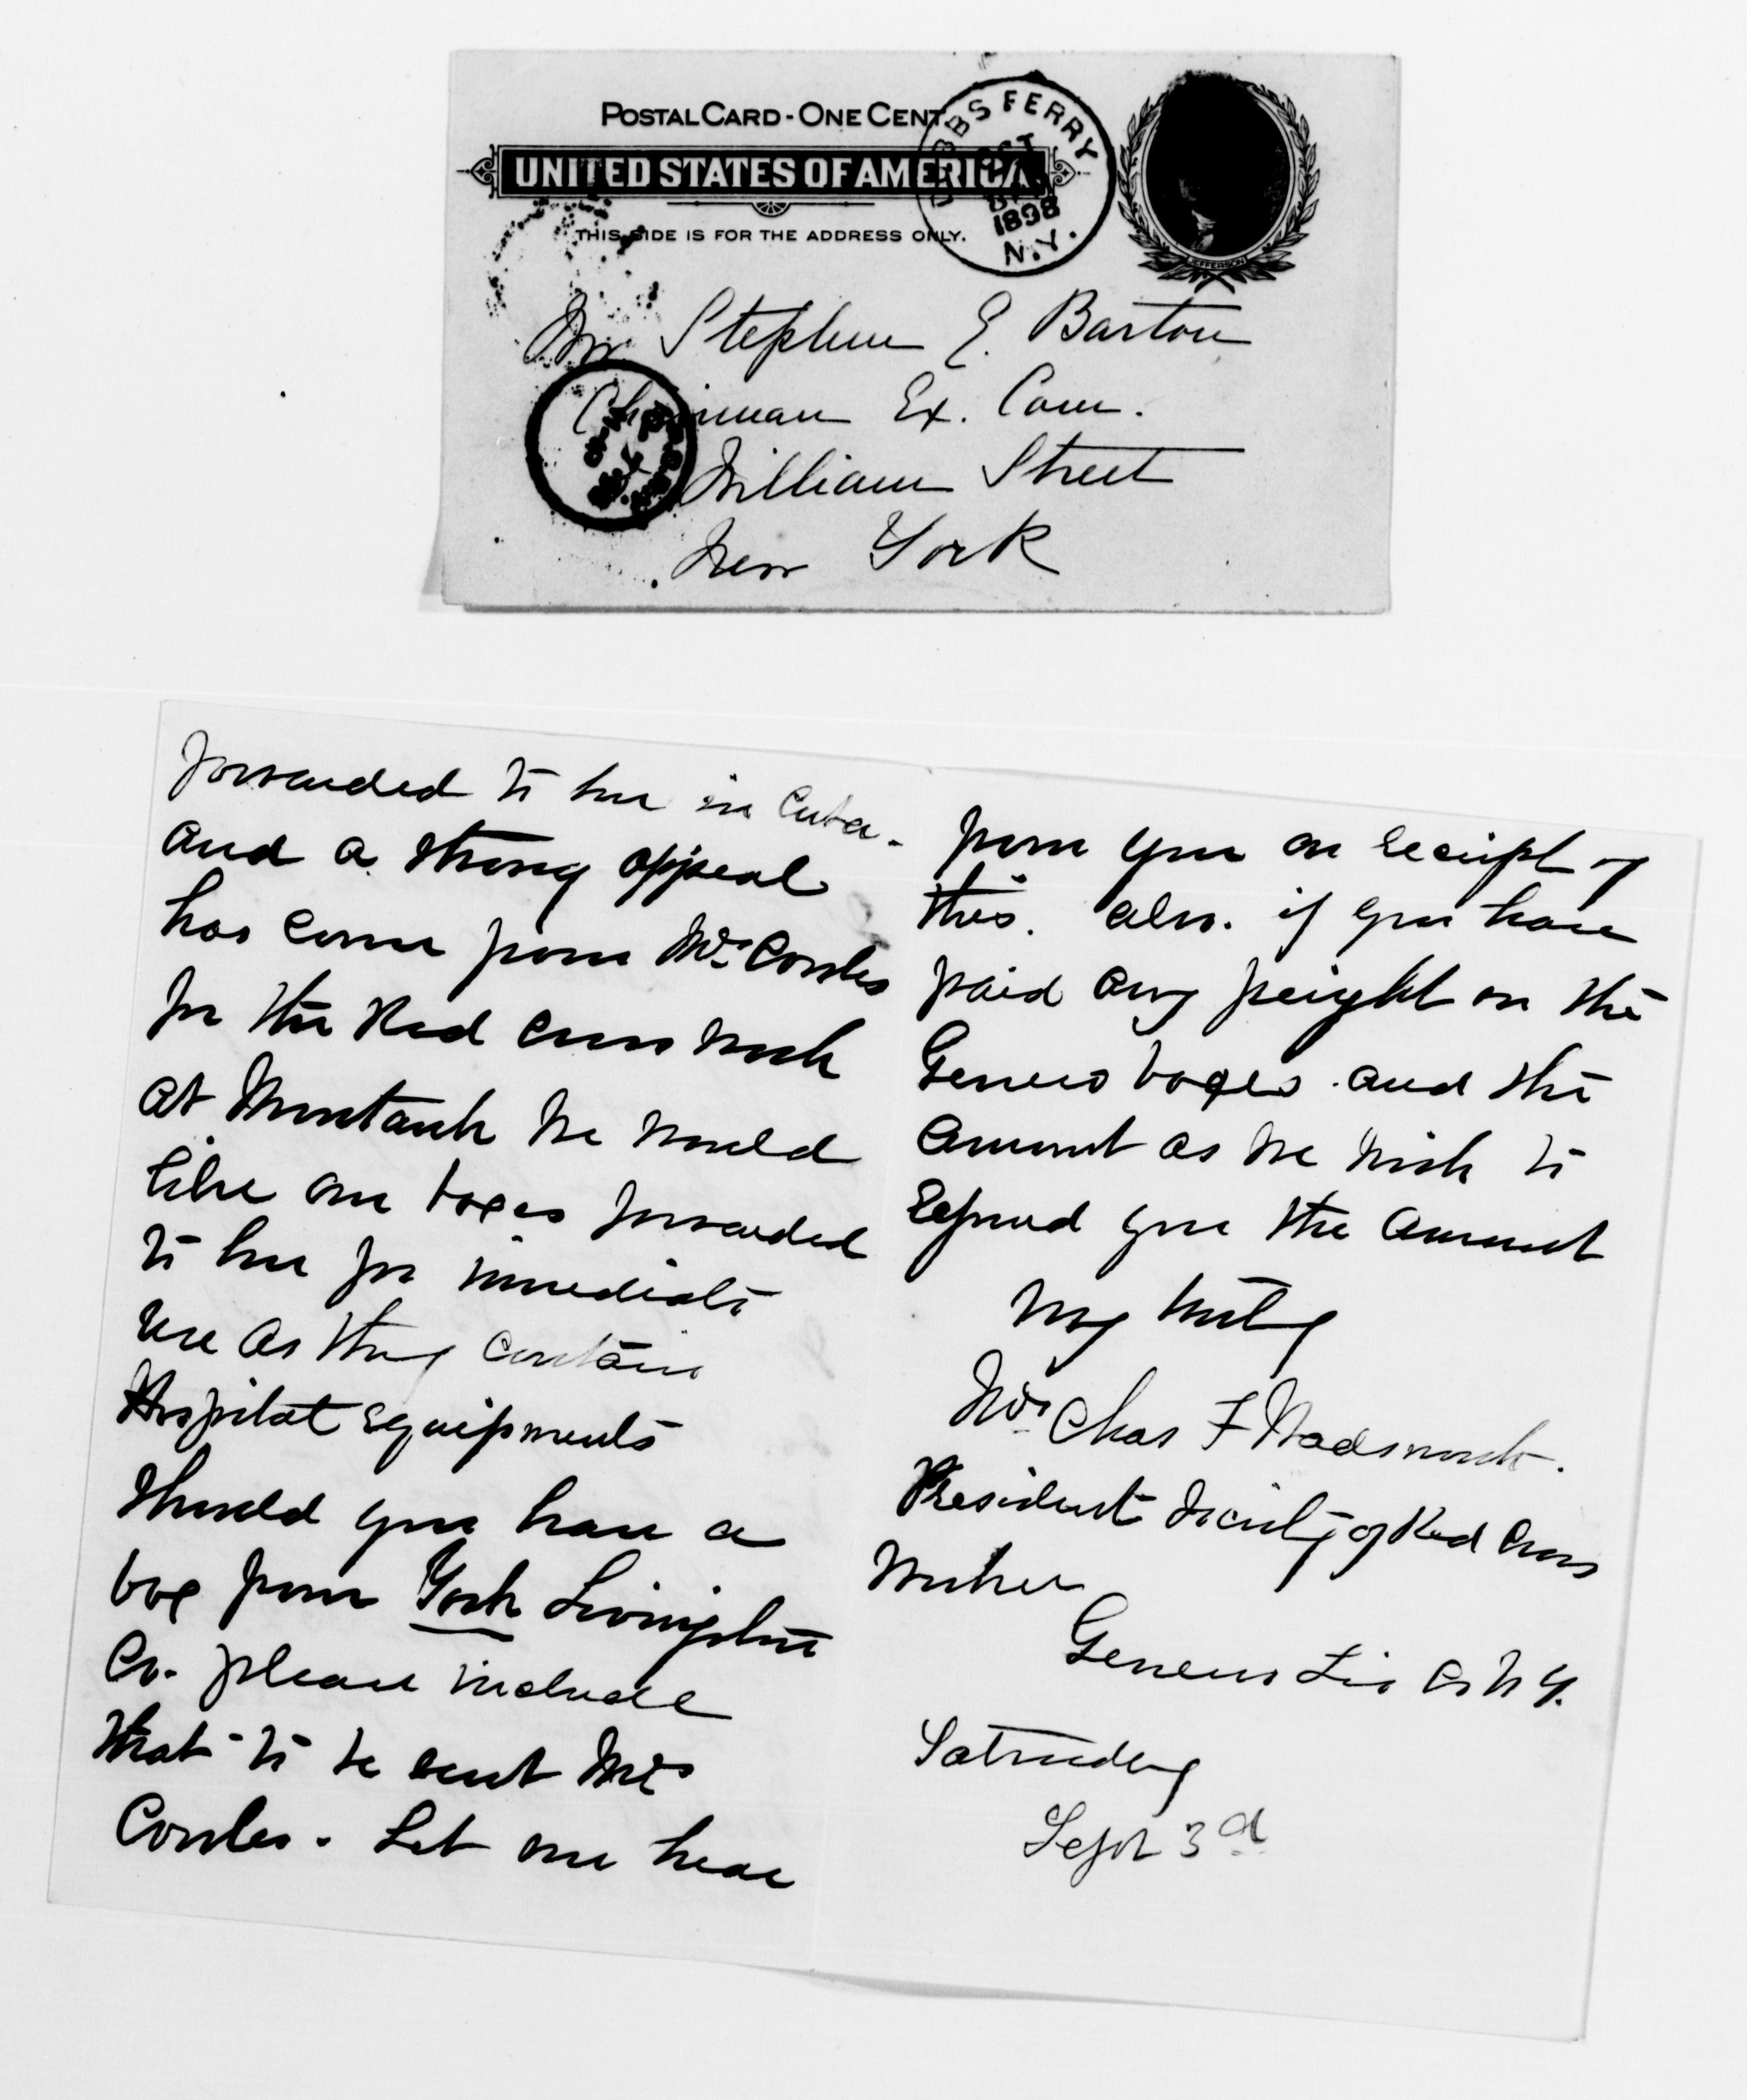 POSTAL CARD - ONE CENT
UNITED STATES OF AMERICA
THIS SIDE IS FOR THE ADDRESS ONLY.
DOBBS FERRY
OCT
1898
N.Y.
JEFFERSON
Mr Stephen E. Barton
Chairman Ex. Com.
William Street
New York
forwarded to her in Cuba.
and a strong appeal
has come from Mrs Cowles
for the Red Cross work
at Montauk We would
like our boxes forwarded
to her for immediate
use as they contain
Hospital equipments
Should you have a
box from York Livingston
Co. please include
that to be sent Mrs
Cowles. Let me hear
from you on receipt of
this. also. if you have
paid any freight on the
Geneseo boxes. and the
amount as we wish to
refund you the amount
Very truly
Mrs Chas F Wadsworth.
President Society of Red Cross
Workers
Geneseo Liv Co N Y.
Saturday
Sept 3d